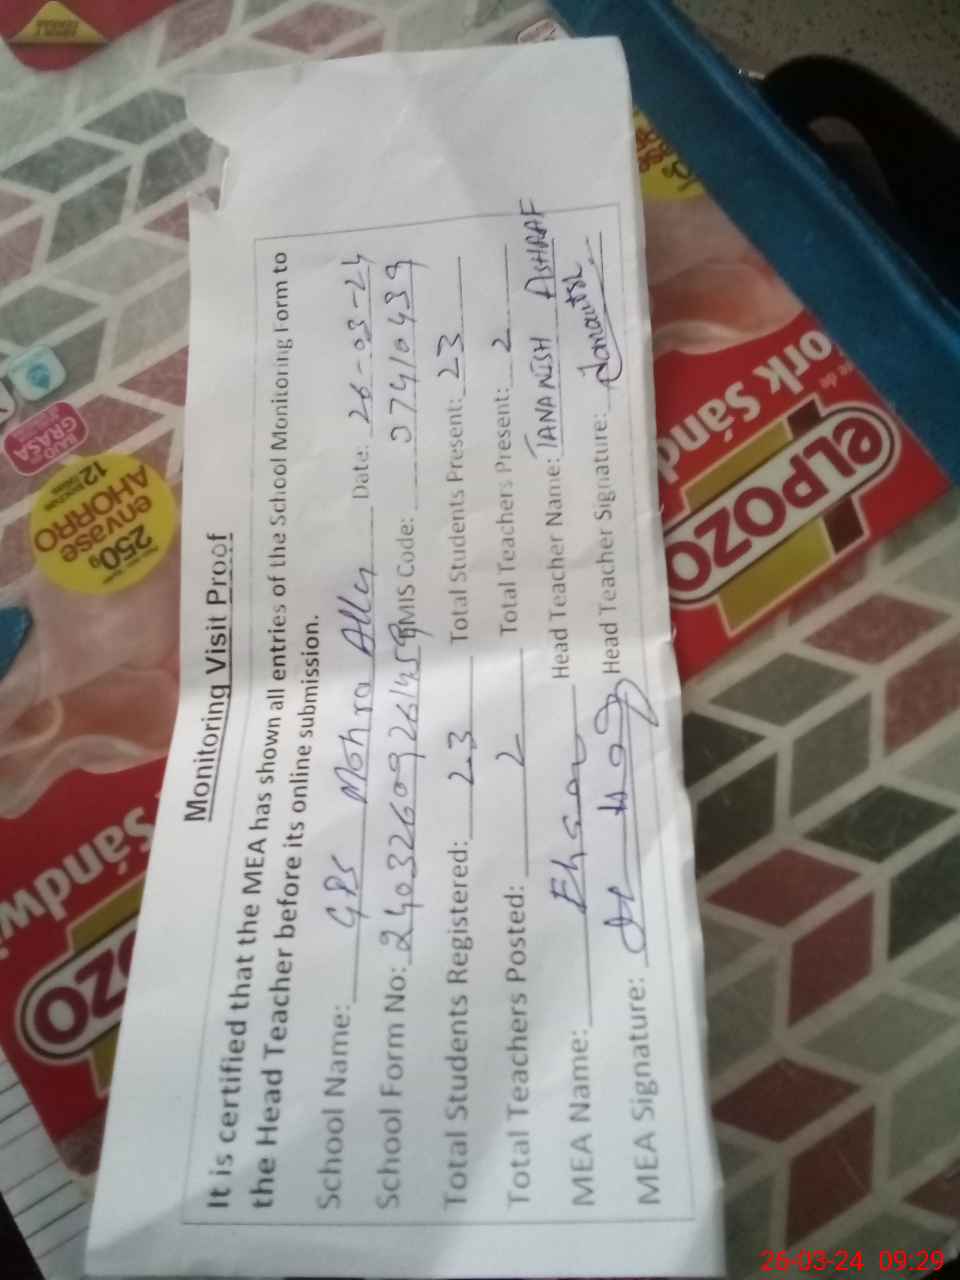 Monitoring Visit Proof
It is certified that the MEA has shown all entries of the School Monitoring Form to
the Head Teacher before its online submission.
School Name: GPS Mohra Ally Date: 26-03-24
School Form No: 24032609261459 EMIS Code: 37410439
Total Students Registered: 23 Total Students Present: 23
Total Teachers Posted: 2 Total Teachers Present: 2
MEA Name: Ehsan Head Teacher Name: TANANISH ASHRAF
MEA Signature: Head Teacher Signature:
ELPOZO
ork Sánd
250g
envase
AHORRO
12
BAJO EN
GRASA
OZO
Sándwi
26-03-24 09:29